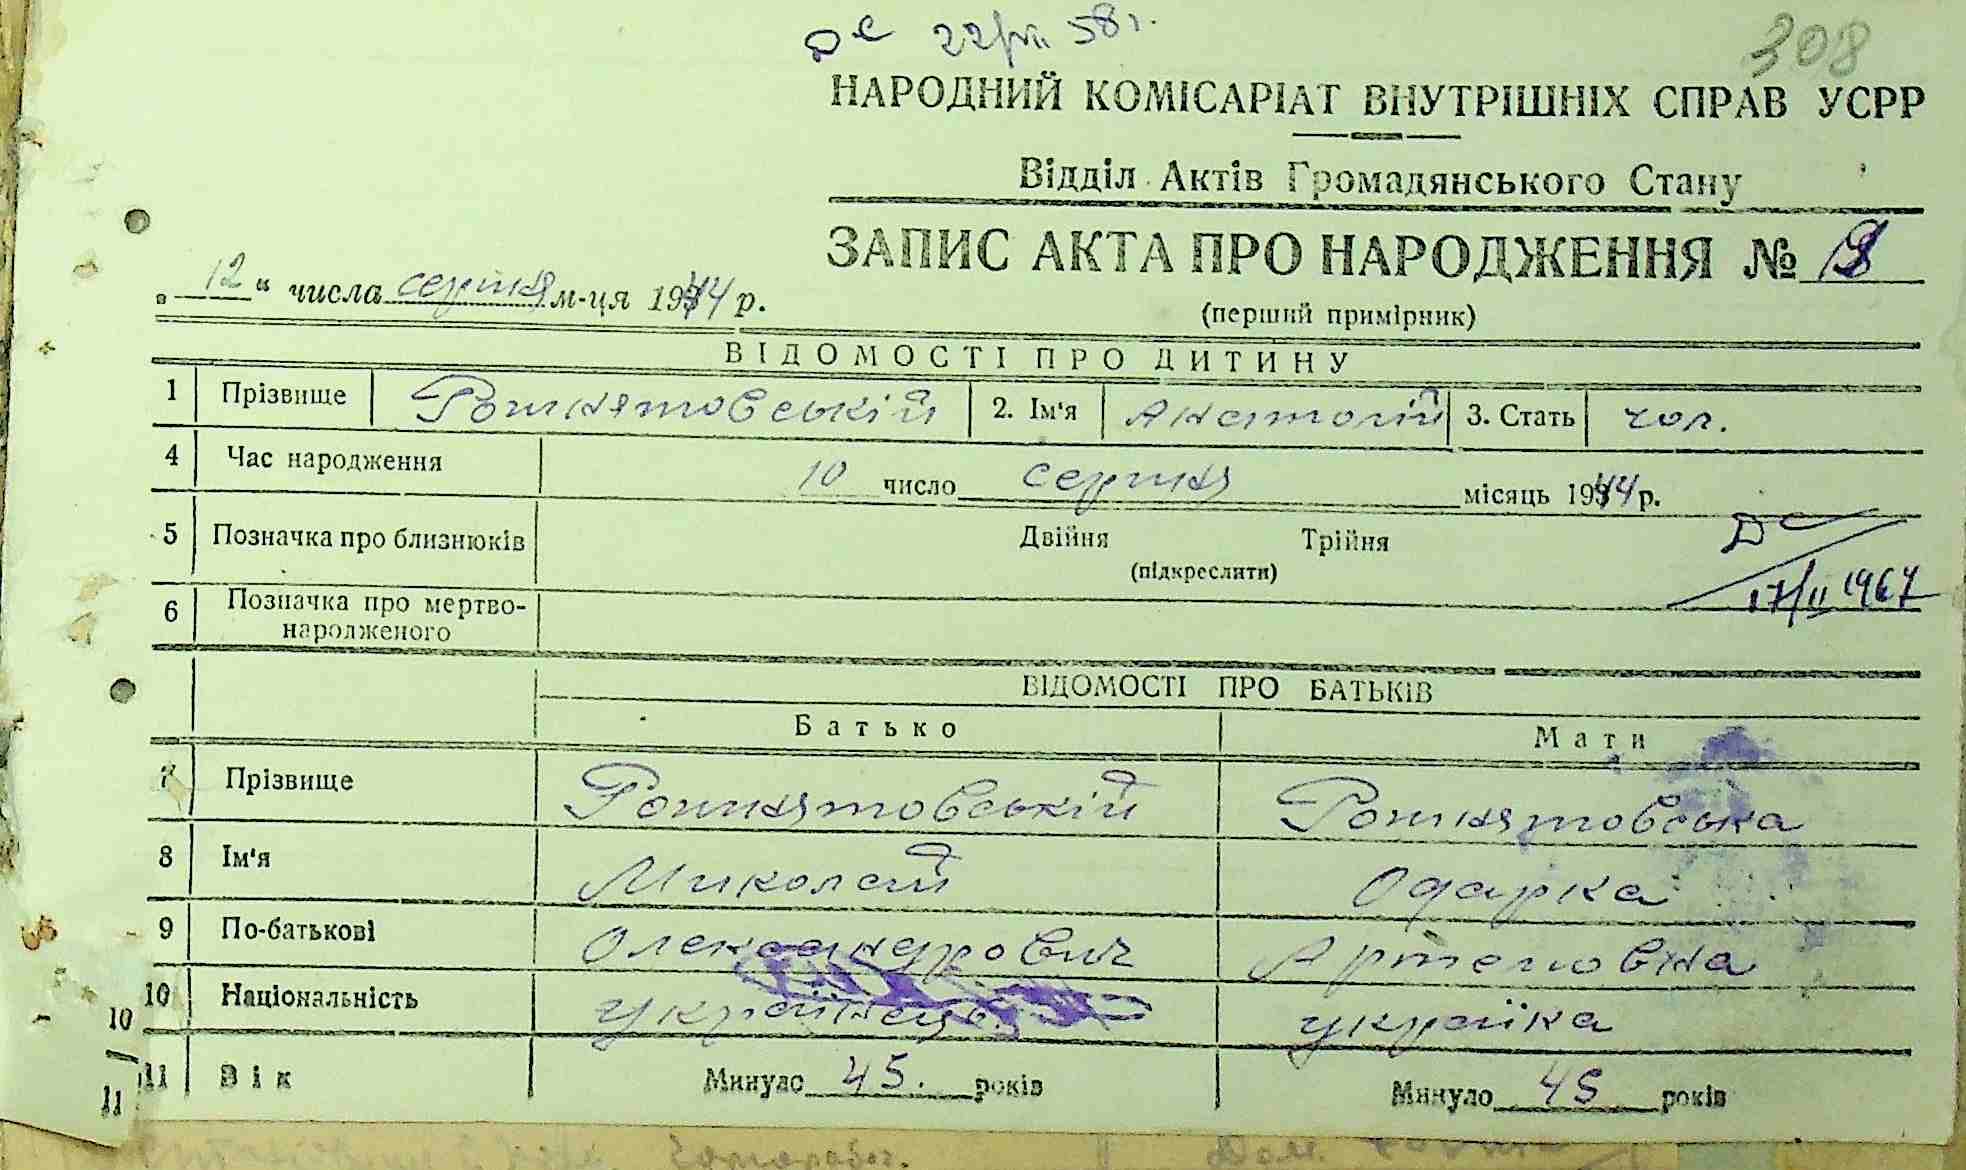 ДС 22/VII 58 г.
308
НАРОДНИЙ КОМІСАРІАТ ВНУТРІШНІХ СПРАВ УСРР
Відділ Актів Громадянського Стану
ЗАПИС АКТА ПРО НАРОДЖЕННЯ №
„12“ числа серпня м-ця 1944 р.
(перший примірник)
ВІДОМОСТІ ПРО ДИТИНУ
1 Прізвище Рошнятовський 2. Ім'я Анатолій 3. Стать чол.
4 Час народження 10 число серпня місяць 1944 р.
5 Позначка про близнюків Двійня Трійня
(підкреслити)
ДС
17/II 1967
6 Позначка про мертво-
народженого
ВІДОМОСТІ ПРО БАТЬКІВ
Батько Мати
7 Прізвище Рошнятовській Рошнятовська
8 Ім'я Миколай Одарка
9 По-батькові Олександрович Артемовна
10 Національність українець україка
11 Вік Минуло 45. років Минуло 45 років
10
11